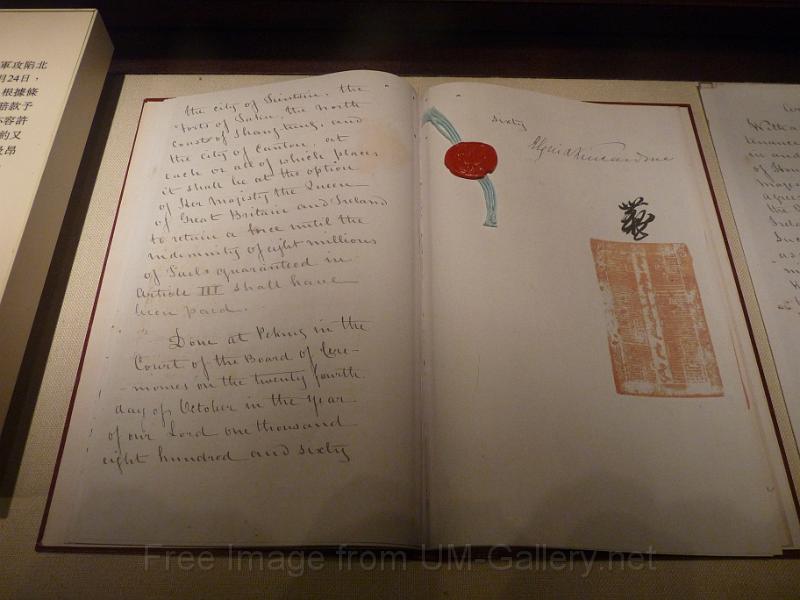 軍攻陷北
月24日，
根據條
賠款予
亦容許
約又
the city of Tientsin, the
Forts of Taku, the north
coast of Shangtung, and
the city of Canton, at
each or all of which places
it shall be at the option
of Her Majesty the Queen
of Great Britain and Ireland
to retain a force until the
indemnity of eight millions
of Taels guaranteed in
Article III shall have
been paid.
Done at Peking in the
Court of the Board of Cere-
-monies on the twenty fourth
day of October in the Year
of our Lord one thousand
eight hundred and sixty
sixty
Elgin & Kincardine
With a
tenance
on and
of
Majes
agree
the
Irela
as
Free Image from UM-Gallery.net